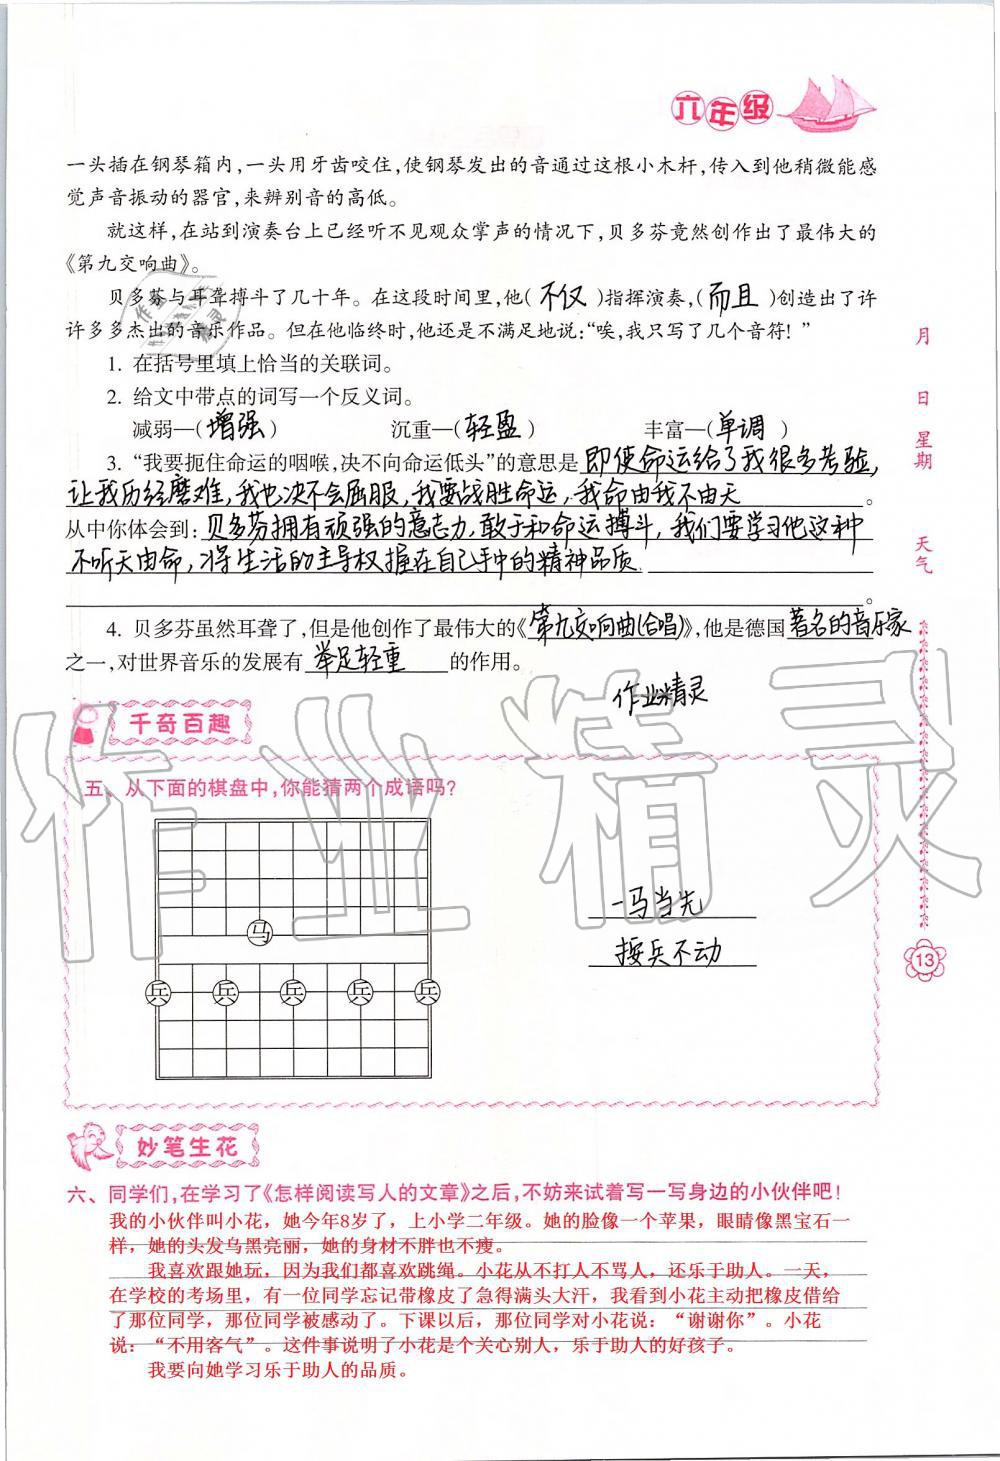 六年级
一头插在钢琴箱内,一头用牙齿咬住,使钢琴发出的音通过这根小木杆,传入到他稍微能感
觉声音振动的器官,来辨别音的高低。
就这样,在站到演奏台上已经听不见观众掌声的情况下,贝多芬竟然创作出了最伟大的
《第九交响曲》。
贝多芬与耳聋搏斗了几十年。在这段时间里,他( 不仅 )指挥演奏,( 而且 )创造出了许
许多多杰出的音乐作品。但在他临终时,他还是不满足地说:“唉,我只写了几个音符!”
1. 在括号里填上恰当的关联词。
2. 给文中带点的词写一个反义词。
减弱—( 增强 ) 沉重—( 轻盈 ) 丰富—( 单调 )
3. “我要扼住命运的咽喉,决不向命运低头”的意思是 即使命运给了我很多考验,
让我历经磨难,我也决不会屈服,我要战胜命运,我命由我不由天 。
从中你体会到: 贝多芬拥有顽强的意志力,敢于和命运搏斗,我们要学习他这种
不听天由命,将生活的主导权握在自己手中的精神品质
。
4. 贝多芬虽然耳聋了,但是他创作了最伟大的《 第九交响曲(合唱) 》,他是德国 著名的音乐家
之一,对世界音乐的发展有 举足轻重 的作用。
作业精灵
千奇百趣
五、从下面的棋盘中,你能猜两个成语吗?
马
兵 兵 兵 兵 兵
一马当先
按兵不动
妙笔生花
六、同学们,在学习了《怎样阅读写人的文章》之后,不妨来试着写一写身边的小伙伴吧!
我的小伙伴叫小花,她今年8岁了,上小学二年级。她的脸像一个苹果,眼睛像黑宝石一
样,她的头发乌黑亮丽,她的身材不胖也不瘦。
我喜欢跟她玩,因为我们都喜欢跳绳。小花从不打人不骂人,还乐于助人。一天,
在学校的考场里,有一位同学忘记带橡皮了急得满头大汗,我看到小花主动把橡皮借给
了那位同学,那位同学被感动了。下课以后,那位同学对小花说:“谢谢你”。小花
说:“不用客气”。这件事说明了小花是个关心别人,乐于助人的好孩子。
我要向她学习乐于助人的品质。
月
日
星期
天气
13
作业精灵